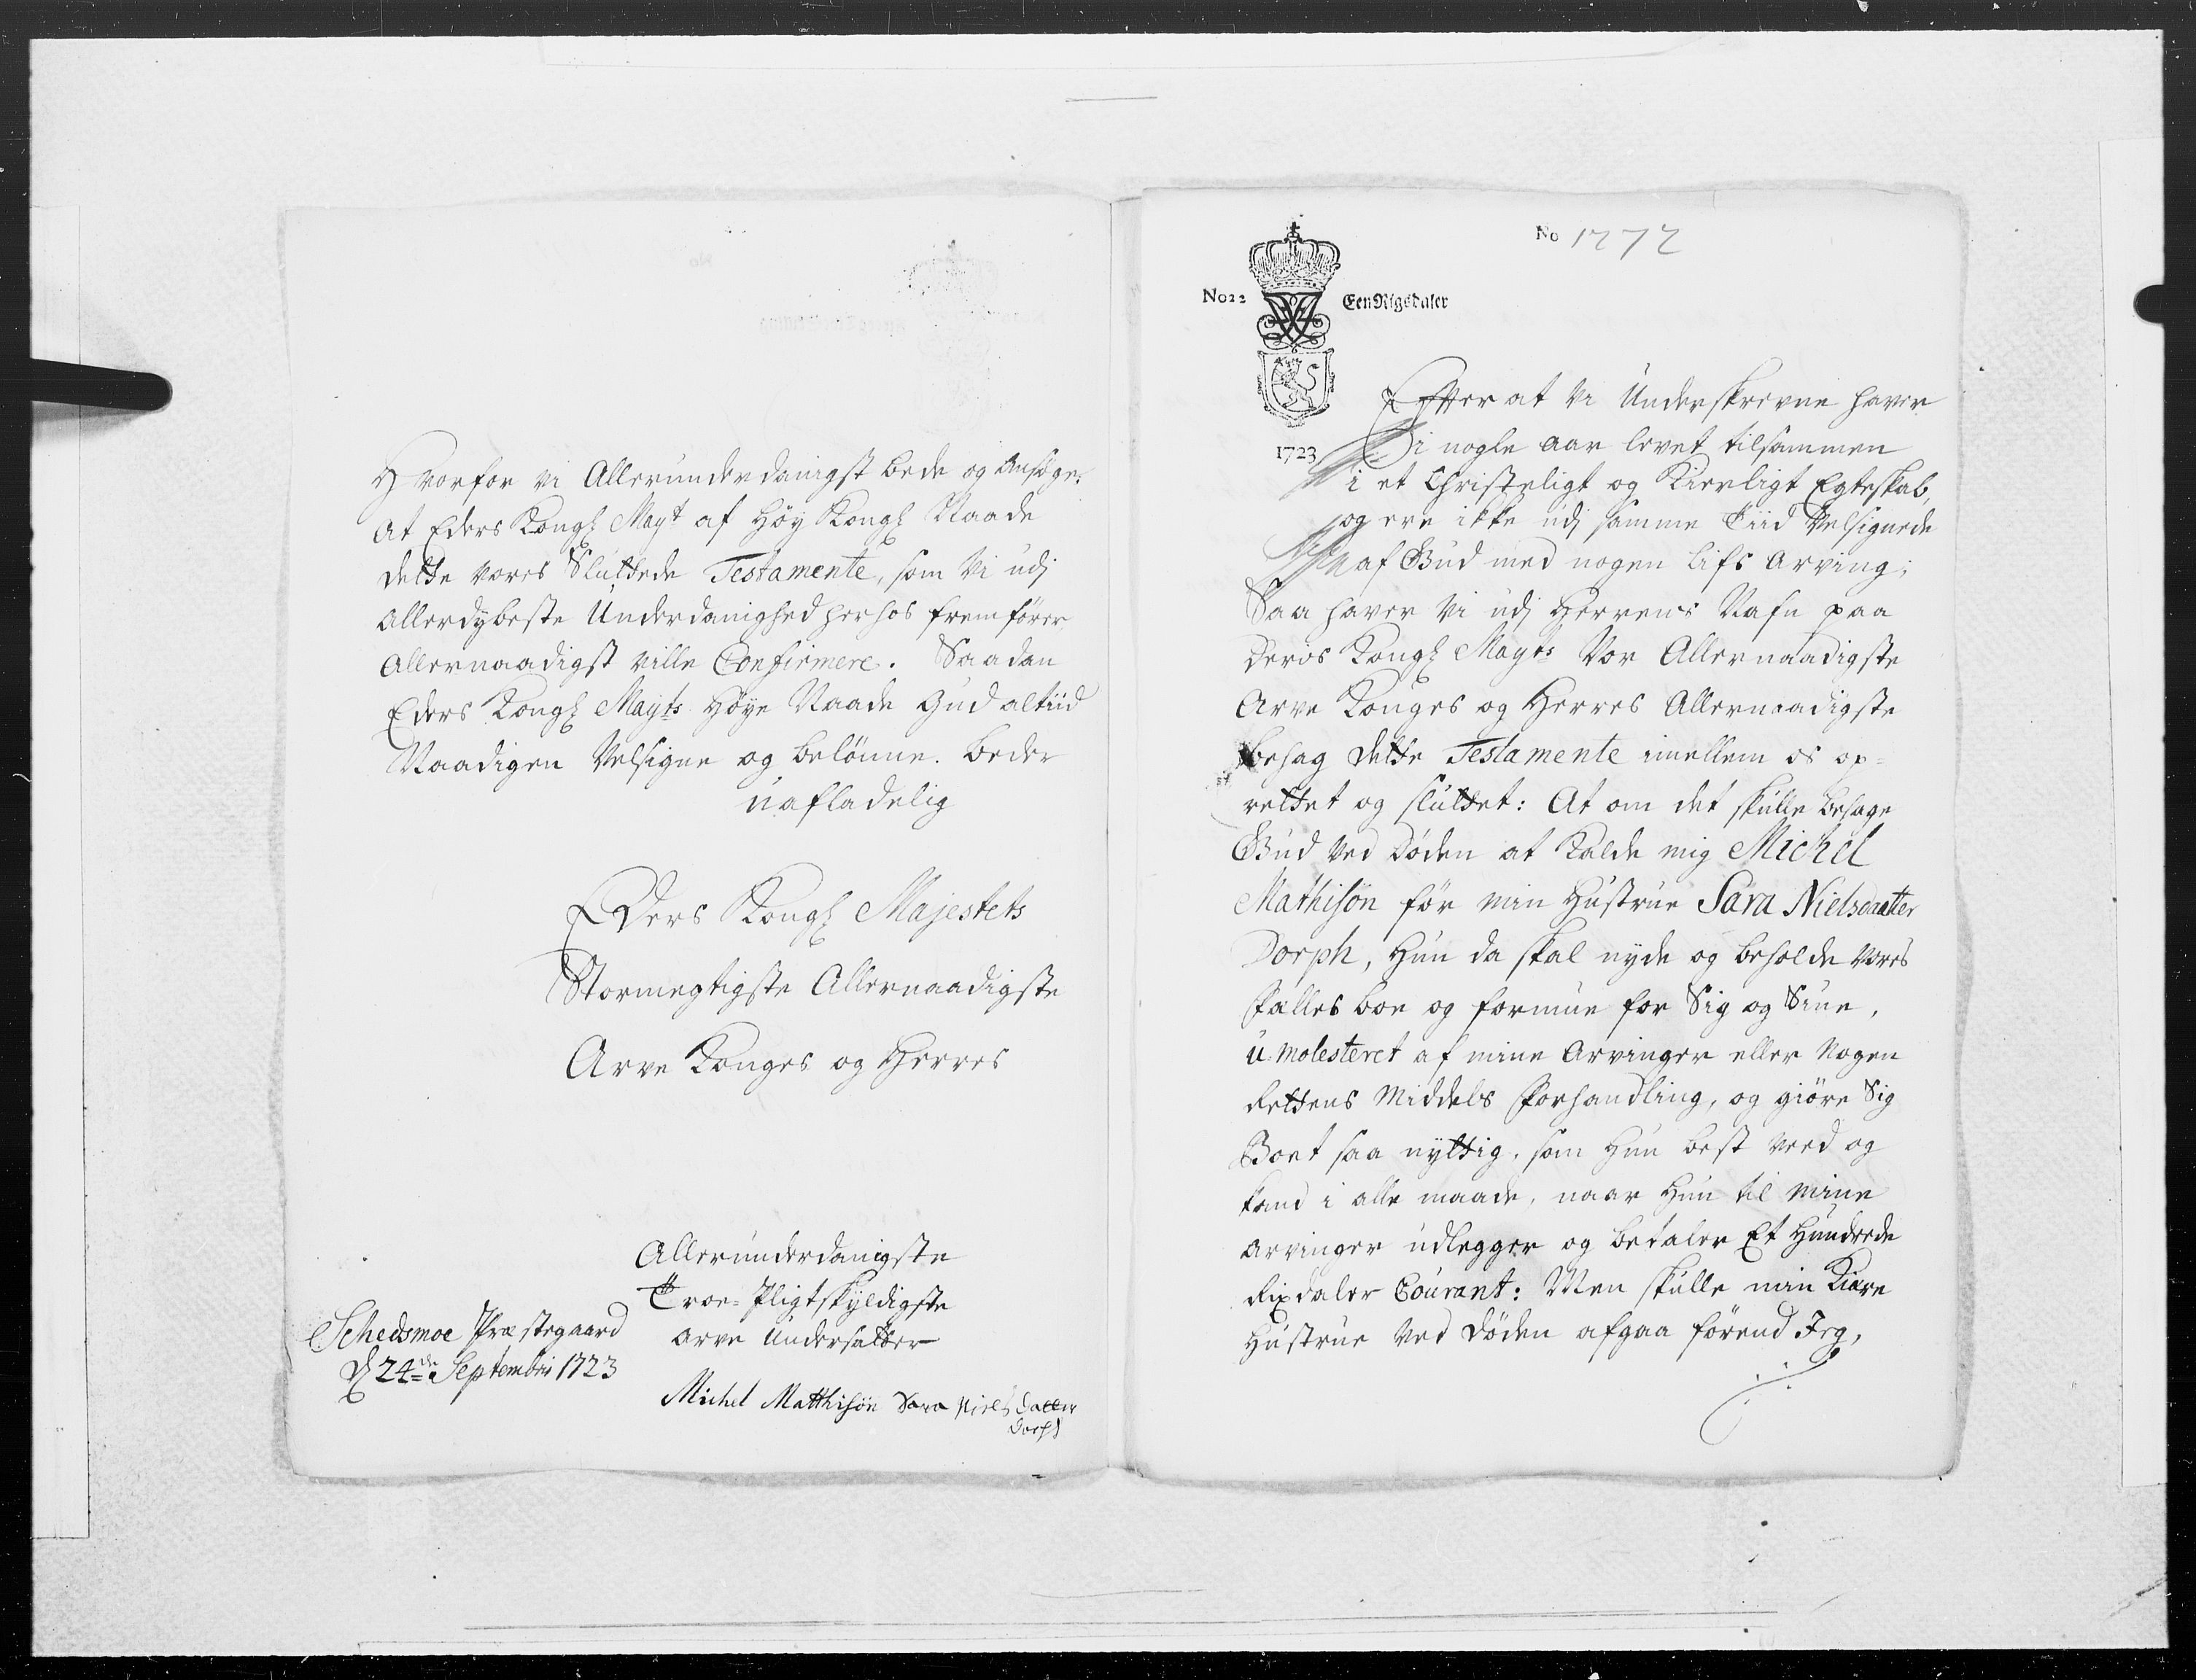 Hvorfor vi Allerunderdanigst bede og Ansøge,
at Eders Kongl Mayt af Høy Kongl Naade
dette vores Sluttede Testamente, som Vi udj
allerdybeste Underdanighed herhos fremfører
allernaadigst ville Confirmere. Saadan
Eders Kongl Mayts Høye Naade Gud altiid
Naadigen Velsigne og belønne. beder
uafladelig
Eders Kongl Majestets
Stormegtigste Allernaadigste
Arve Konges og Herres
Allerunderdanigste
Troe-Pligtskyldigste
arve Undersatter
Schedsmoe Præstegaard
d 24de Septembris 1723
Michel Matthisøn Sara Niels Datter
Dorph
No 1772
No 22 Een Rigsdaler
1723
Efter at vi Underskrevne haver
i nogle aar levet tilsammen
i et Christeligt og Kierligt Egteskab,
og ere ikke udj samme Tiid Velsignede
af Gud med nogen Lifs Arving;
Saa haver vi udj Herrens Nafn paa
Deris Kongl Mayts Vor Allernaadigste
Arve Konges og Herres Allernaadigste
behag dette Testamente imellem os op=
rettet og sluttet: At om det skulle behage
Gud ved Døden at Kalde mig Michel
Mathisøn før min Hustrue Sara Nielsdaatter
Dorph, Hun da skal nyde og beholde vores
Fælles boe og formue for Sig og Sine,
u-molesteret af mine Arvinger eller Nogen
Rettens Middels Forhandling, og giøre Sig
Boet saa nyttig, som Hun best veed og
kand i alle maade, naar Hun til mine
arvinger udlegger og betaler Et Hundrede
Rixdaler Courant: Men skulle min Kiære
Hustrue ved Døden afgaa førend Jeg,